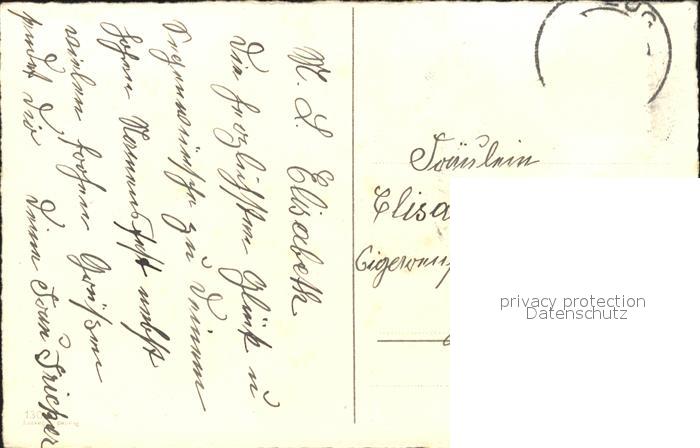 M. L. Elisabeth
Die herzlichsten Glück u
Segenswünsche zu Deinem
hohen Namensfest nebst
vielen frohen Grüßen
sendet Dir Deine
Fräulein
Elisa
privacy protection
Datenschutz